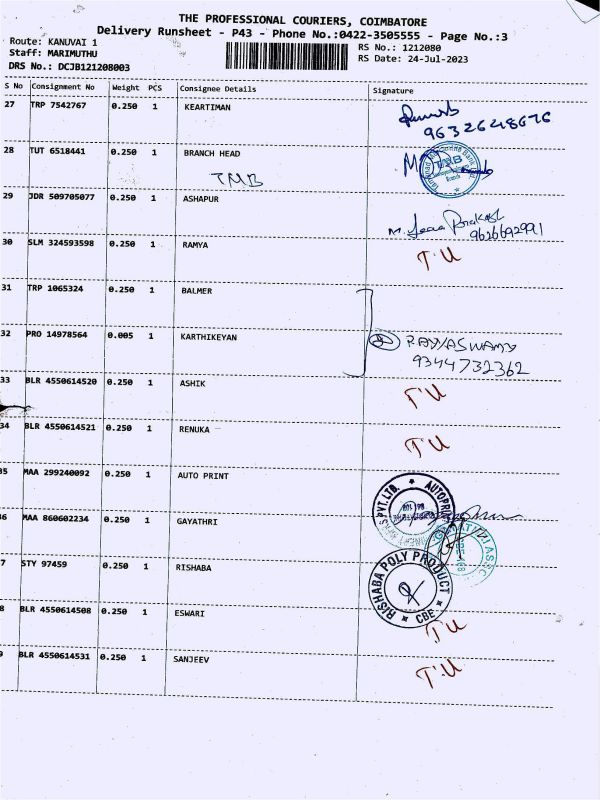 THE PROFESSIONAL COURIERS, COIMBATORE
Delivery Runsheet - P43 - Phone No.:0422-3505555 - Page No.:3
Route: KANUVAI 1
Staff: MARIMUTHU
DRS No.: DCJB121208003
RS No.: 1212080
RS Date: 24-Jul-2023
S No Consignment No Weight PCS Consignee Details Signature
27 TRP 7542767 0.250 1 KEARTIMAN
9632648676
28 TUT 6518441 0.250 1 BRANCH HEAD
TMB
TMB
29 JDR 509705077 0.250 1 ASHAPUR
9626692991
30 SLM 324593598 0.250 1 RAMYA T.U
31 TRP 1065324 0.250 1 BALMER
32 PRO 14978564 0.005 1 KARTHIKEYAN
9344732362
33 BLR 4550614520 0.250 1 ASHIK T.U
34 BLR 4550614521 0.250 1 RENUKA T.U
35 MAA 299240092 0.250 1 AUTO PRINT
PVT. LTD. AUTOPRI
36 MAA 860602234 0.250 1 GAYATHRI
7 STY 97459 0.250 1 RISHABA
RISHABA POLY PRODUCT
CBE
8 BLR 4550614508 0.250 1 ESWARI T.U
9 BLR 4550614531 0.250 1 SANJEEV T.U